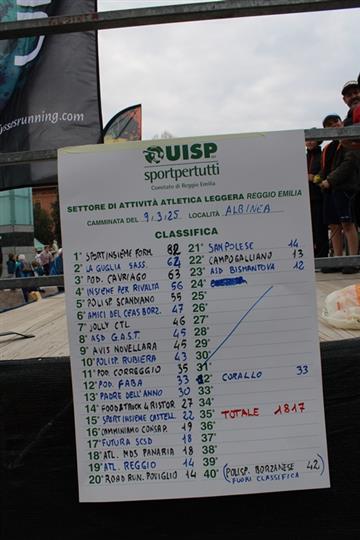 ssesrunning.com
UISP
sportpertutti
Comitato di Reggio Emilia
SETTORE DI ATTIVITÀ ATLETICA LEGGERA REGGIO EMILIA
CAMMINATA DEL 9/3/25 LOCALITÀ ALBINEA
CLASSIFICA
1° SPORTINSIEME FORM. 82
2° LA GUGLIA SASS. 64
3° POD. CAVRIAGO 63
4° INSIEME PER RIVALTA 56
5° POLISP. SCANDIANO 55
6° AMICI DEL CEAS BORZ. 47
7° JOLLY CTL 46
8° ASD G.A.S.T. 45
9° AVIS NOVELLARA 45
10° POLISP. RUBIERA 43
11° POD. CORREGGIO 35
12° POD. FABA 33
13° PADRE DELL'ANNO 30
14° FOOD&TRUCK & RISTOR 27
15° SPORTINSIEME CASTELL. 22
16° CAMMINIAMO CONSAP. 19
17° FUTURA SCSD 18
18° ATL. MDS PANARIA 18
19° ATL. REGGIO 14
20° ROAD RUN. POVIGLIO 14
21° SAMPOLESE 14
22° CAMPOGALLIANO 13
23° AID BISMANTOVA 12
24°
25°
26°
27°
28°
29°
30°
31°
32° CORALLO 33
33°
34°
35° TOTALE 1817
36°
37°
38°
39°
40° (POLISP. BORZANESE 42)
FUORI CLASSIFICA